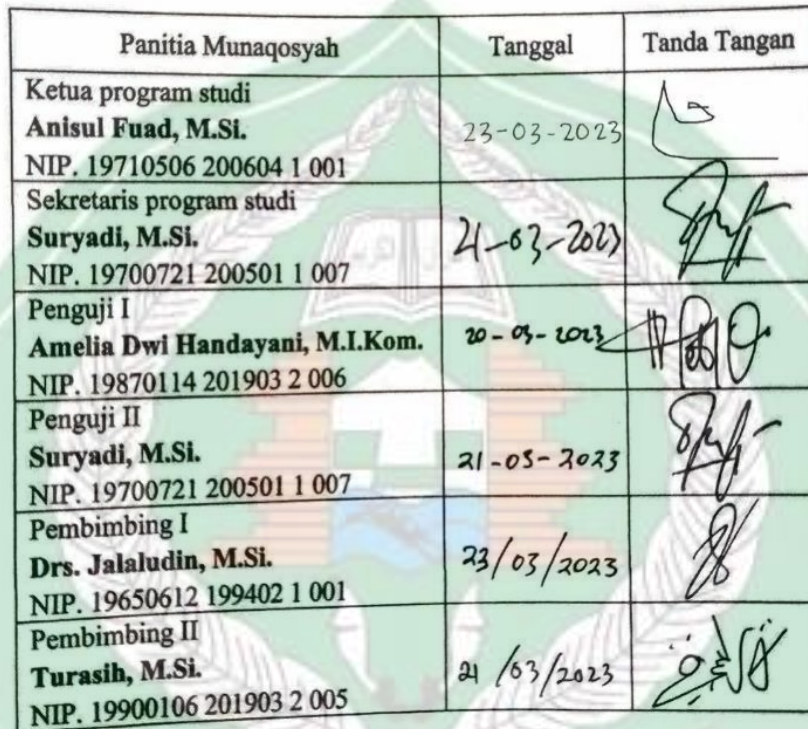 Panitia Munaqosyah Tanggal Tanda Tangan
Ketua program studi
Anisul Fuad, M.Si.
NIP. 19710506 200604 1 001
23-03-2023
Sekretaris program studi
Suryadi, M.Si.
NIP. 19700721 200501 1 007
21-03-2023
Penguji I
Amelia Dwi Handayani, M.I.Kom.
NIP. 19870114 201903 2 006
20-03-2023
Penguji II
Suryadi, M.Si.
NIP. 19700721 200501 1 007
21-03-2023
Pembimbing I
Drs. Jalaludin, M.Si.
NIP. 19650612 199402 1 001
23/03/2023
Pembimbing II
Turasih, M.Si.
NIP. 19900106 201903 2 005
21/03/2023